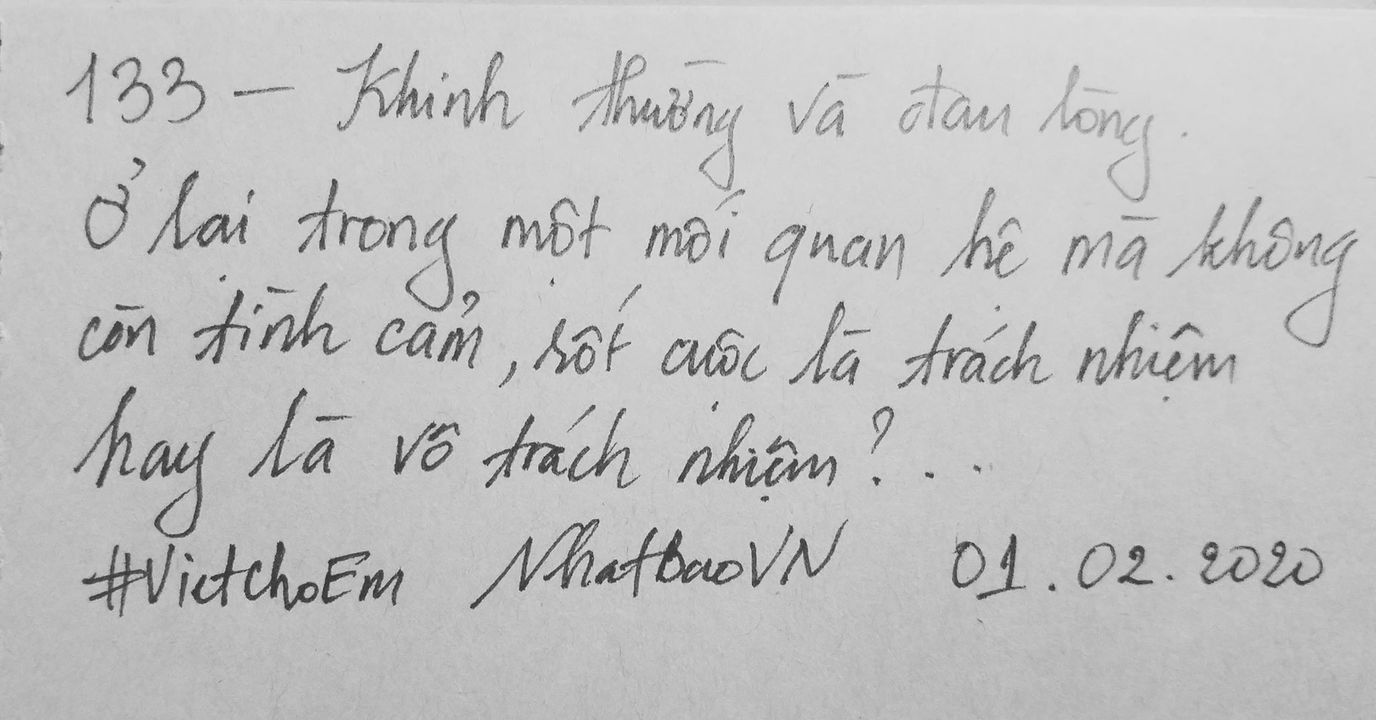 133 – Khinh thường và đau lòng.
Ở lại trong một mối quan hệ mà không
còn tình cảm, rốt cuộc là trách nhiệm
hay là vô trách nhiệm?...
#VietchoEm NhatBaoVN 01.02.2020